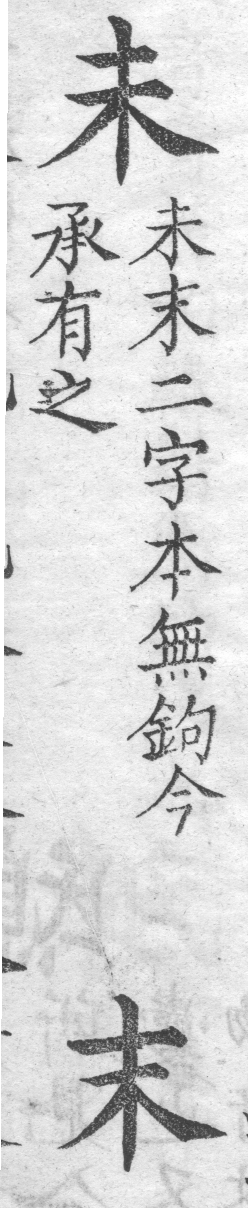 未
未末二字本無鉤今
承有之
末